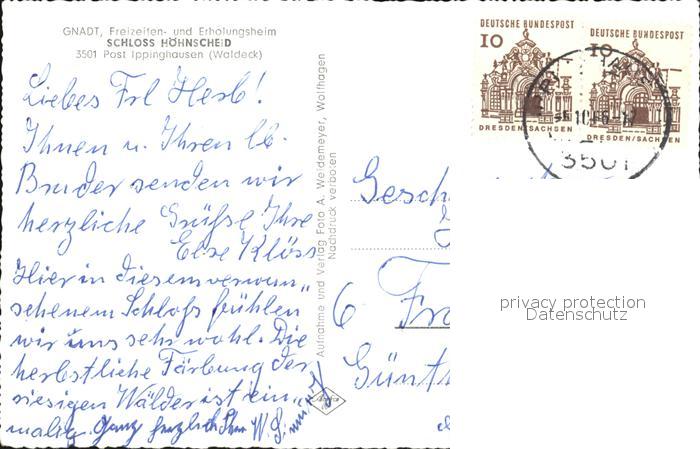 GNADT, Freizeiten- und Erholungsheim
SCHLOSS HÖHNSCHEID
3501 Post Ippinghausen (Waldeck)
Liebes Frl Herb!
Ihnen u. Ihren lb.
Bruder senden wir
herzliche Grüße Ihre
Else Klöss
Hier in diesem verwun„
schenem Schloß fühlen
wir uns sehr wohl. Die
herbstliche Färbung der
riesigen Wälder ist ein„
malig. Ganz herzlich Ihr W.
Aufnahme und Verlag Foto A. Weidemeyer, Wolfhagen
Nachdruck verboten
DEUTSCHE BUNDESPOST
10
DRESDEN/SACHSEN
DEUTSCHE BUNDESPOST
10
DRESDEN/SACHSEN
3501
Gesch
6 Fra
Günth
privacy protection
Datenschutz